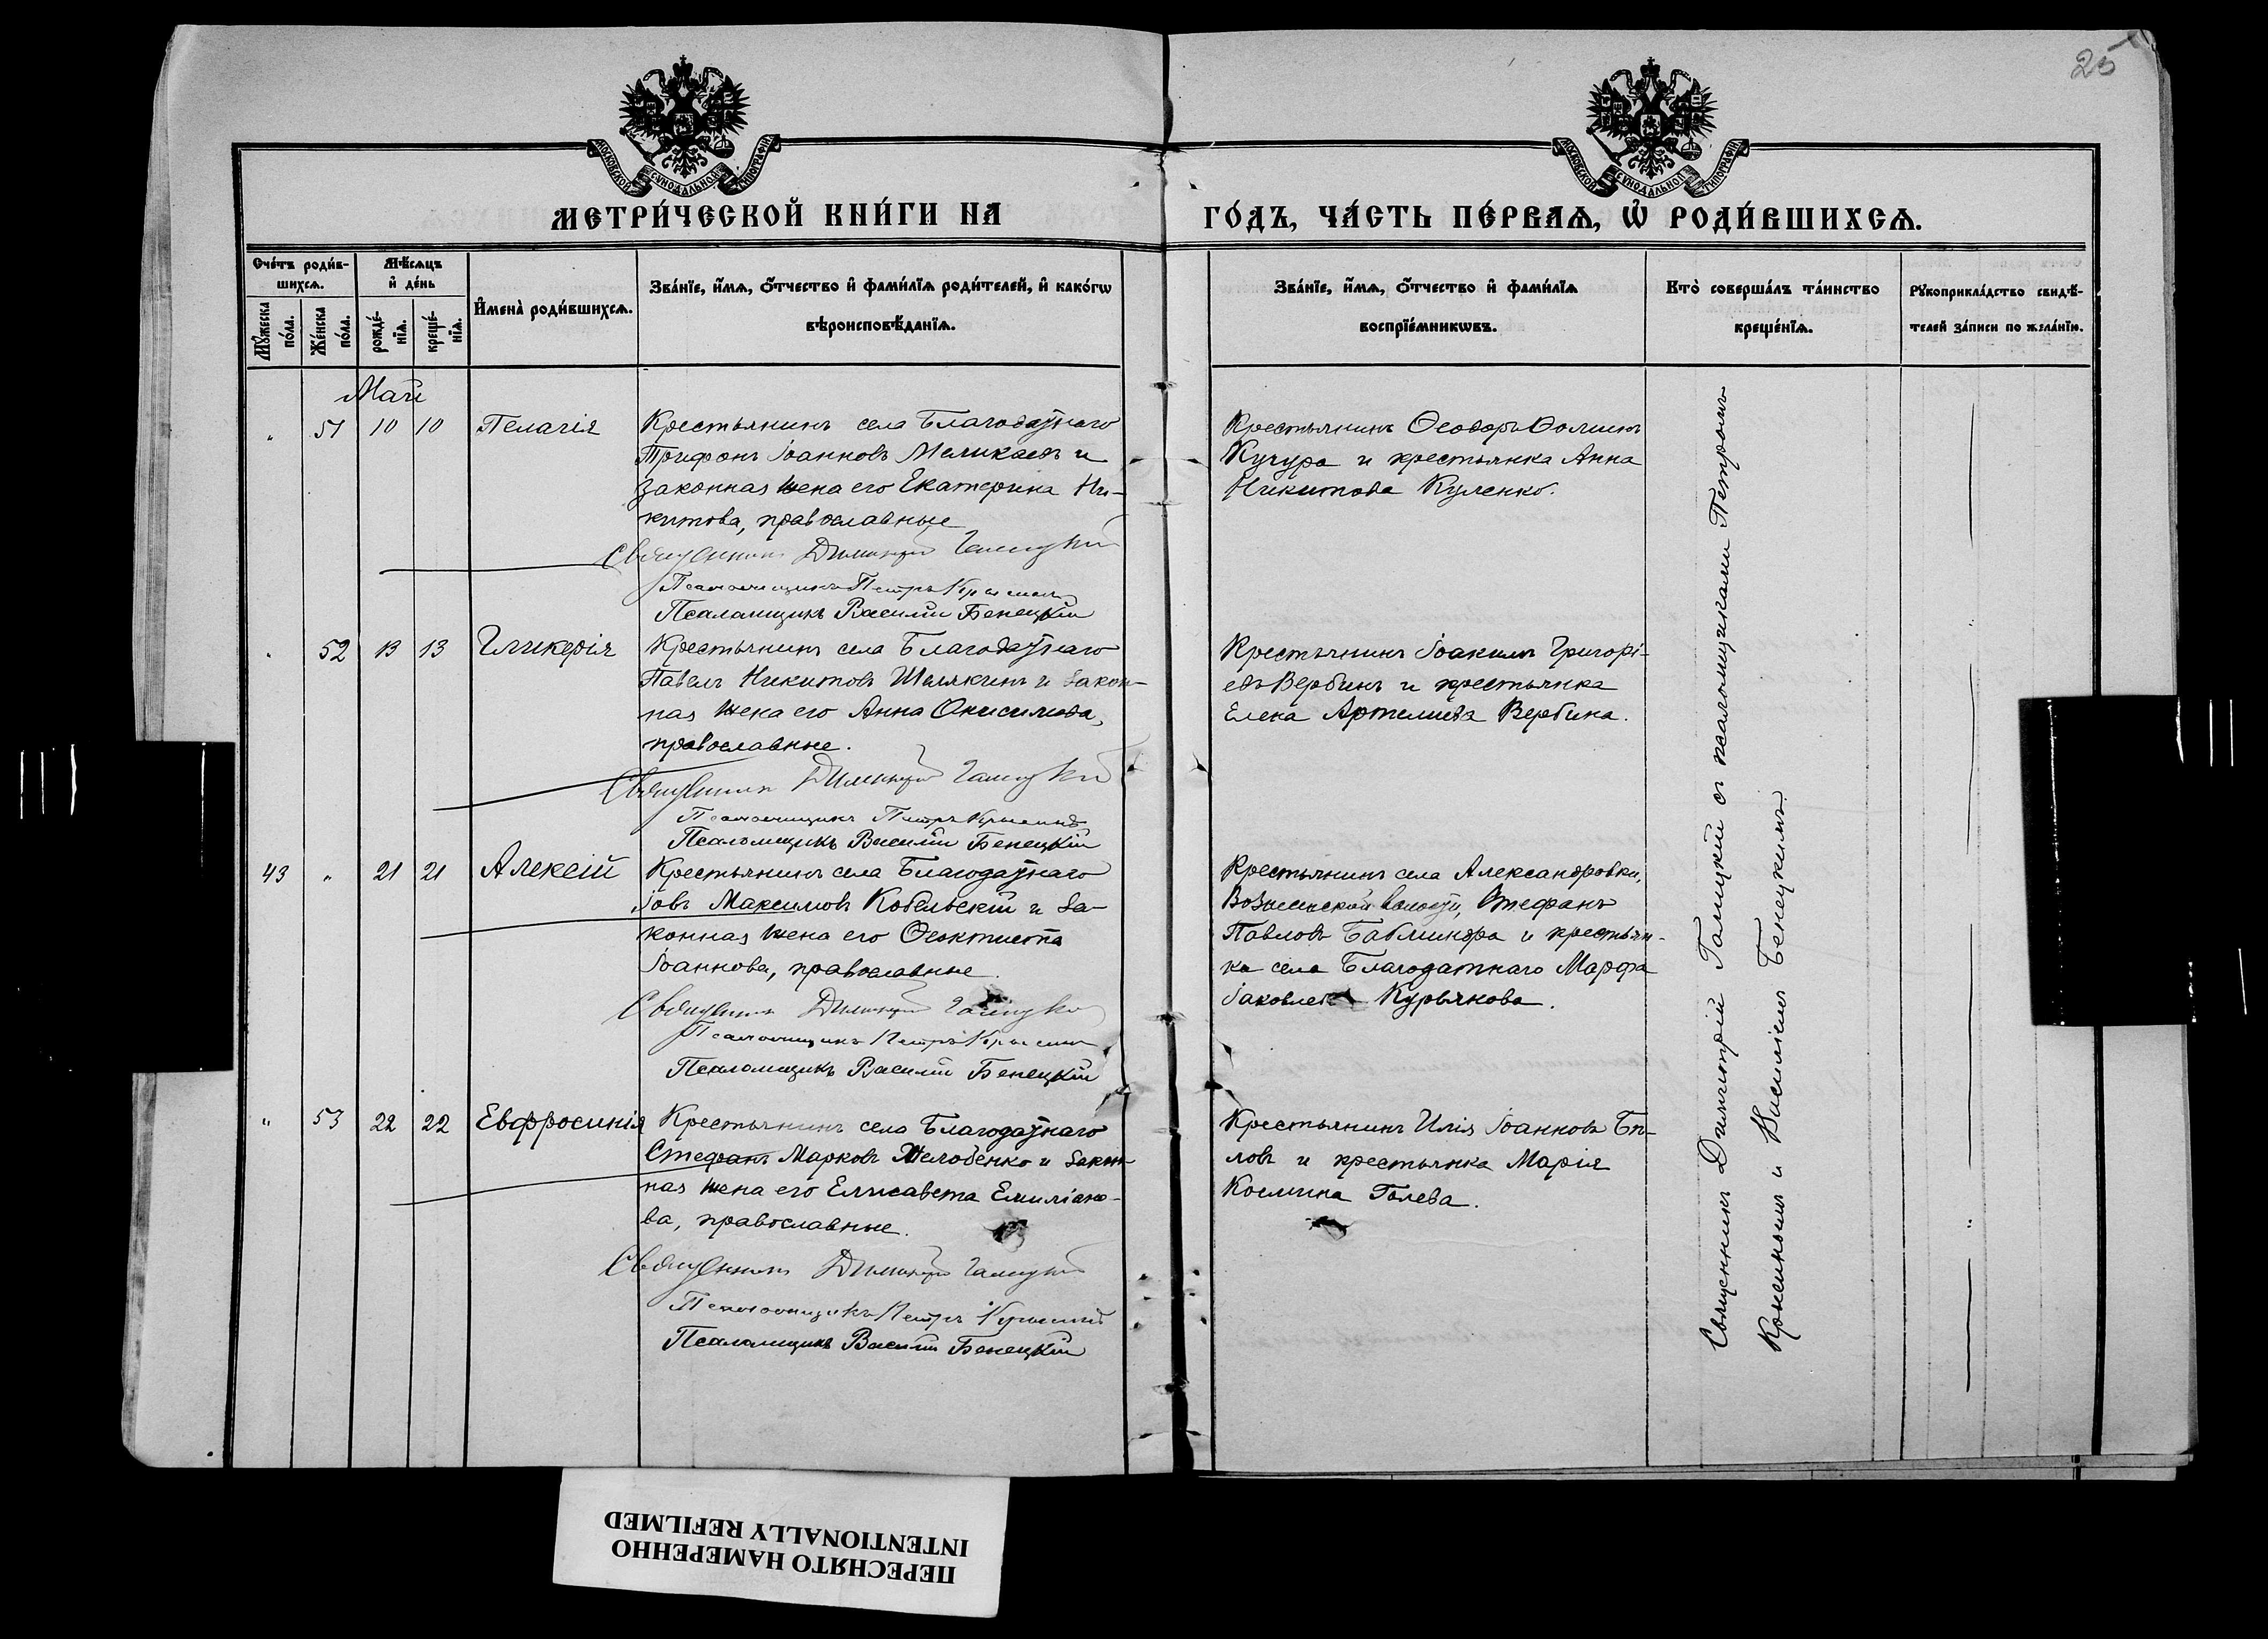 25
МОСКОВСКОЙ СѴНОДАЛЬНОЙ ТИПОГРАФІИ
МОСКОВСКОЙ СѴНОДАЛЬНОЙ ТИПОГРАФІИ
МЕТРИ́ЧЕСКОЙ КНИ́ГИ НА
ГО́ДЪ, ЧА́СТЬ ПЕ́РВАѦ, Ѡ РОДИ́ВШИХСѦ.
Сче́тъ роди́в-
шихсѧ.
Мꙋ́жеска
по́ла.
Же́нска
по́ла.
Мѣ́сѧцъ
и҆ де́нь
рожде́-
нїѧ.
креще́-
нїѧ.
И҆мена̀ роди́вшихсѧ.
Зва́нїе, и҆́мѧ, ѻ҆́тчество и҆ фамѝлїѧ роди́телей, и҆ како́гѡ
вѣроисповѣ́данїѧ.
Зва́нїе, и҆́мѧ, ѻ҆́тчество и҆ фами́лїѧ
воспрїе́мникѡвъ.
Кто̀ соверша́лъ та́инство
креще́нїѧ.
Рꙋкоприкла́дство свидѣ́-
телей за́писи по жела́нїю.
Май
„ 51 10 10 Пелагія
Крестьянинъ села Благодатнаго
Трифонъ Іоанновъ Меликаевъ и
законная жена его Екатерина Ни-
китова, православные
Священникъ Димитрій Галицкій
Псаломщикъ Петръ Крыжинъ
Псаломщикъ Василій Бенецкій
Крестьянинъ Ѳеодоръ Ѳоминъ
Кучура и крестьянка Анна
Никитова Куленко.
„ 52 13 13 Гликерія
Крестьянинъ села Благодатнаго
Павелъ Никитовъ Шелякинъ и закон-
ная жена его Анна Онисимова,
православные.
Священникъ Димитрій Галицкій
Псаломщикъ Петръ
Псаломщикъ Василій Бенецкій
Крестьянинъ Іоакимъ Григорі-
евъ Вербинъ и крестьянка
Елена Артемиева Вербина.
43 „ 21 21 Алексій
Крестьянинъ села Благодатнаго
Іовъ Максимовъ Кобельскій и за-
конная жена его Ѳеоктиста
Іоаннова, православные.
Священникъ Димитрій Галицкій
Псаломщикъ Петръ
Псаломщикъ Василій Бенецкій
Крестьянинъ села Александровки,
волости, Стефанъ
Павловъ и крестьян-
ка села Благодатнаго Марфа
Іаковлева Курьянова.
„ 53 22 22 Евфросинія
Крестьянинъ села Благодатнаго
Стефанъ Марковъ Желобенко и закон-
ная жена его Елисавета Емиліано-
ва, православные.
Священникъ Димитрій Галицкій
Псаломщикъ Петръ
Псаломщикъ Василій Бенецкій
Крестьянинъ Илія Іоанновъ Бѣ-
ловъ и крестьянка Марія
Космина Голева.
Священникъ Димитрій Галицкій съ псаломщиками Петромъ
и Василіемъ Бенецкимъ.
ПЕРЕСНЯТО НАМЕРЕННО
INTENTIONALLY REFILMED